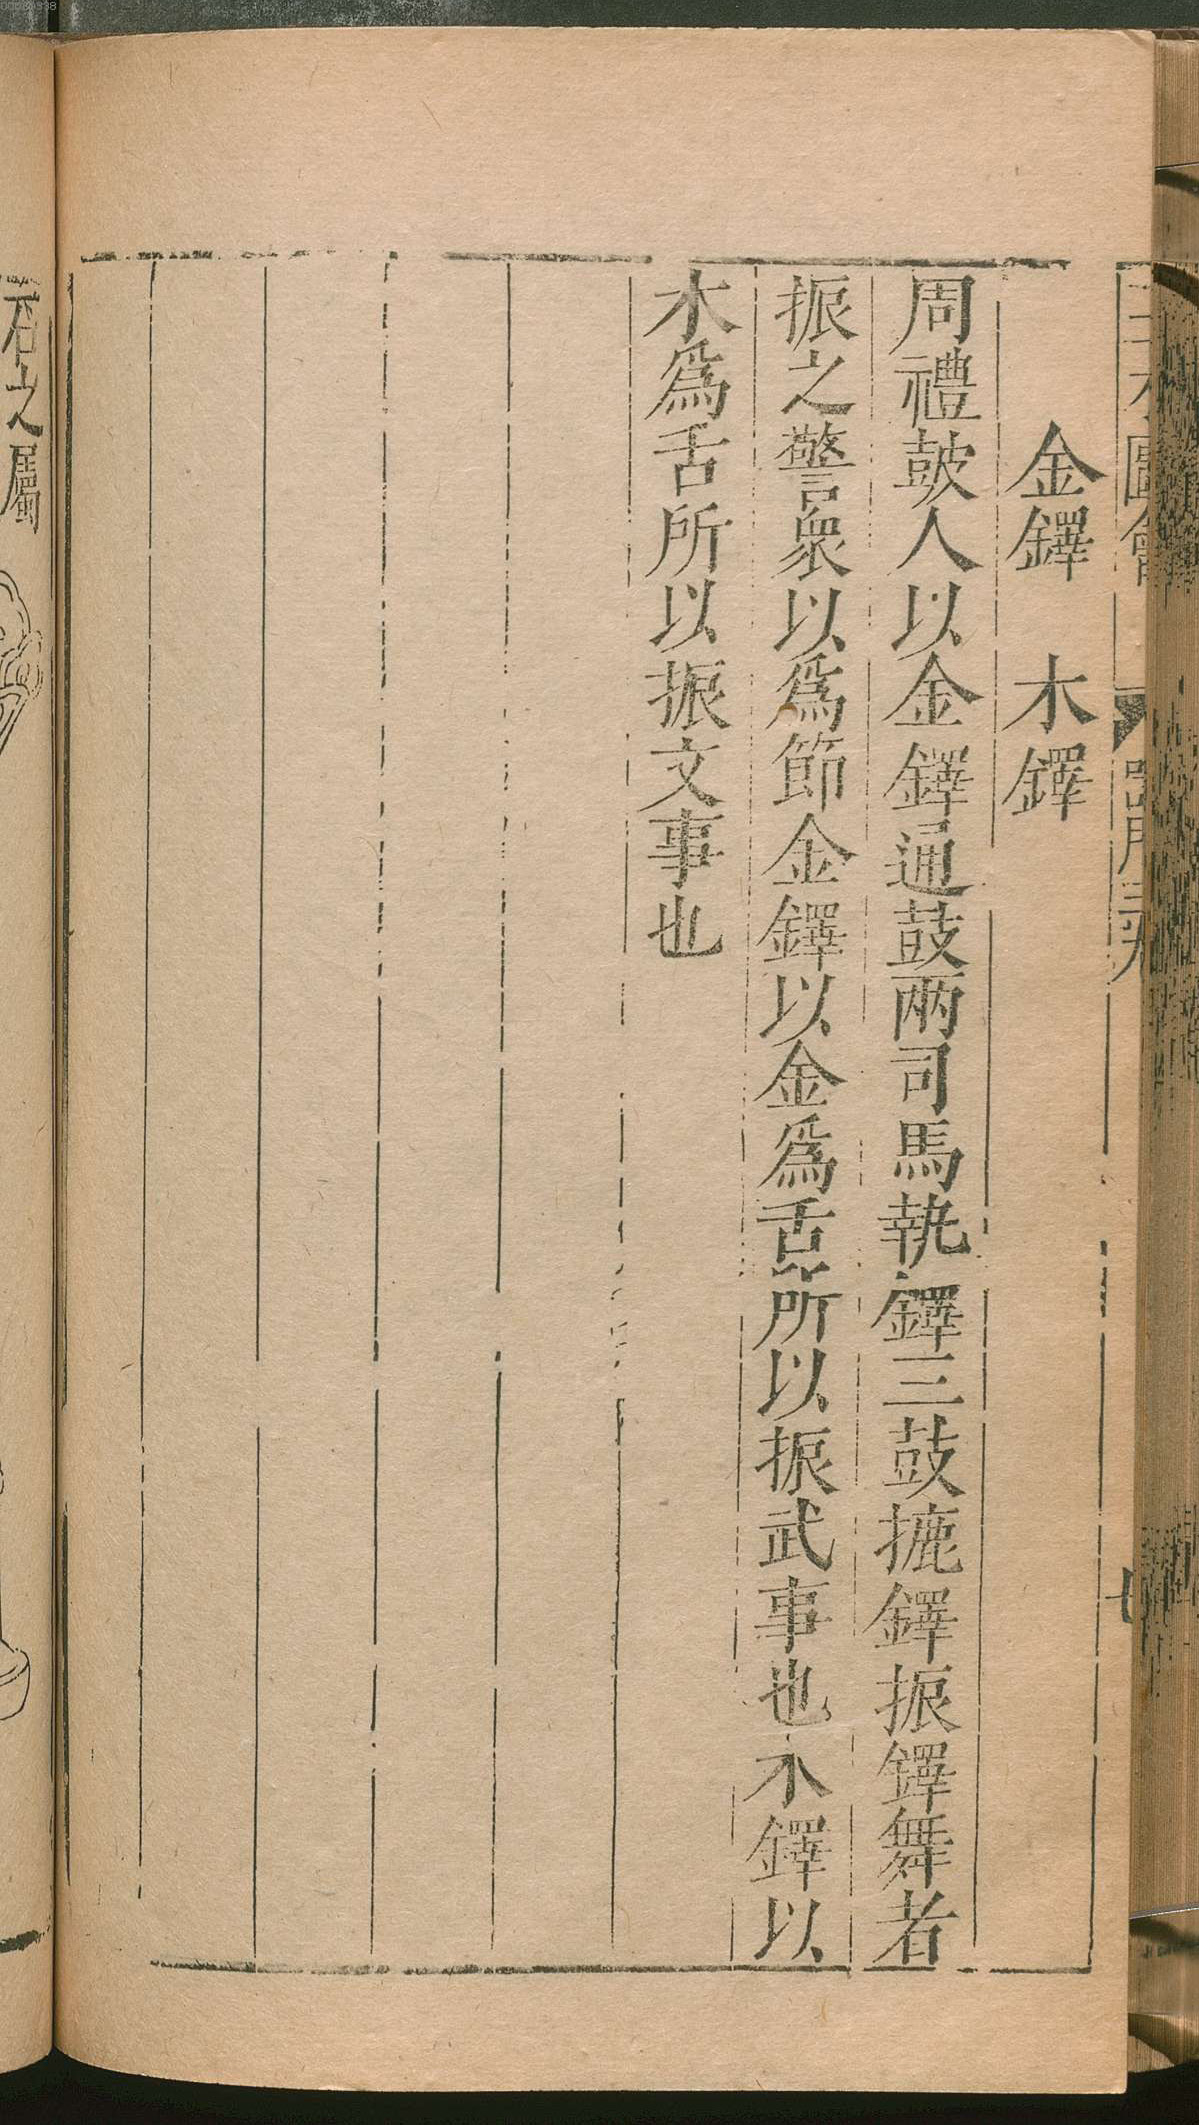 金鐸　木鐸
周禮皷人以金鐸通鼓兩司馬執鐸三鼓摝鐸振鐸舞者
振之警衆以爲節金鐸以金爲舌所以振武事也木鐸以
木爲舌所以振文事也
石之屬